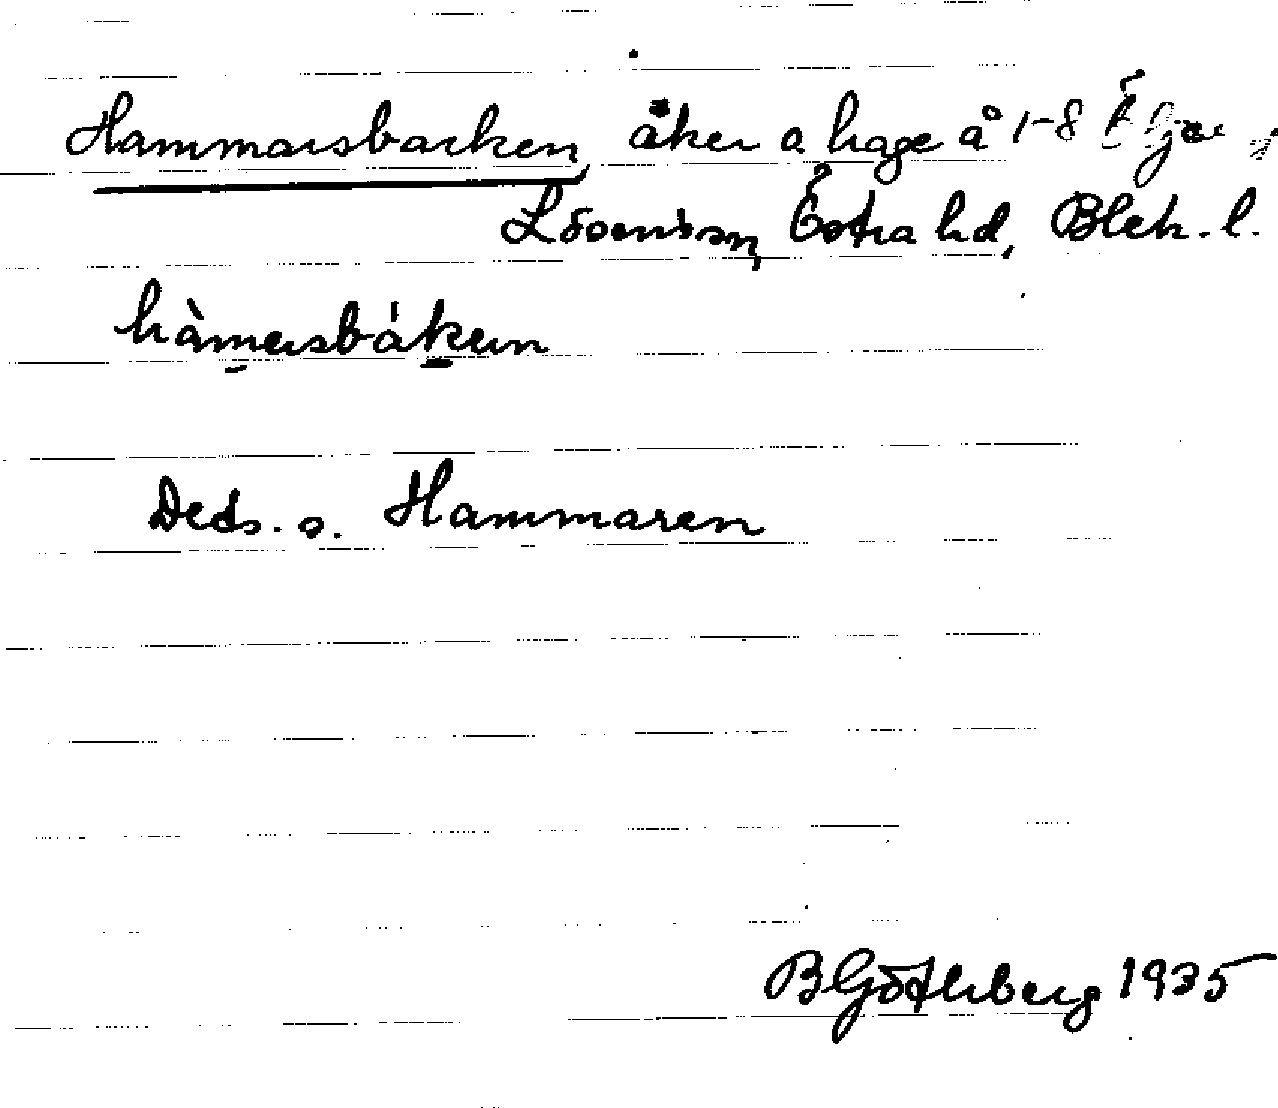 Hammarsbacken, åker o hage å 1-8
Lösensn, Östra hd, Blek. l.
hàmarsbáken
Deds. o. Hammaren
B Göthberg 1935